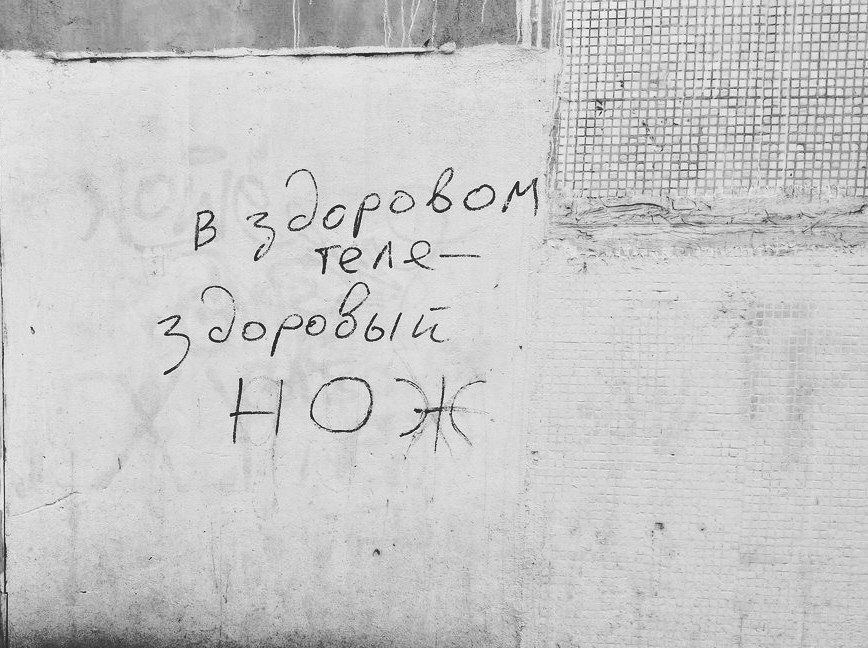 в здоровом
теле —
здоровый
НОЖ